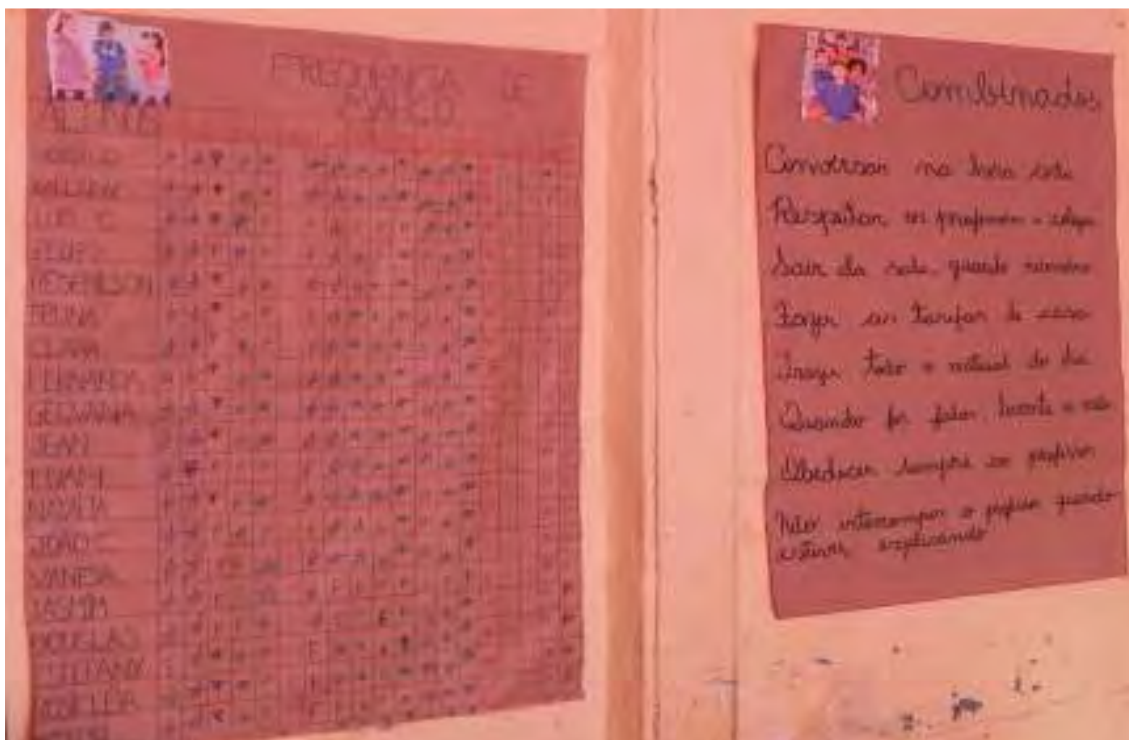 FREQUENCIA DE
MARÇO
ALUNOS
WILLIAM
LUIS C.
BRUNA
CLARA
FERNANDA
GEOVANNA
JEAN
NATALIA
JOÃO C.
VANESA
IASMIM
DOUGLAS
Combinados
Conversar na hora certa
Respeitar os professores e colegas
Sair da sala, quando necessário
Fazer as tarefas de casa
Trazer todo o material do dia
Quando for falar, levante a mão
Obedecer sempre ao professor
Não interromper o professor quando
estiver explicando